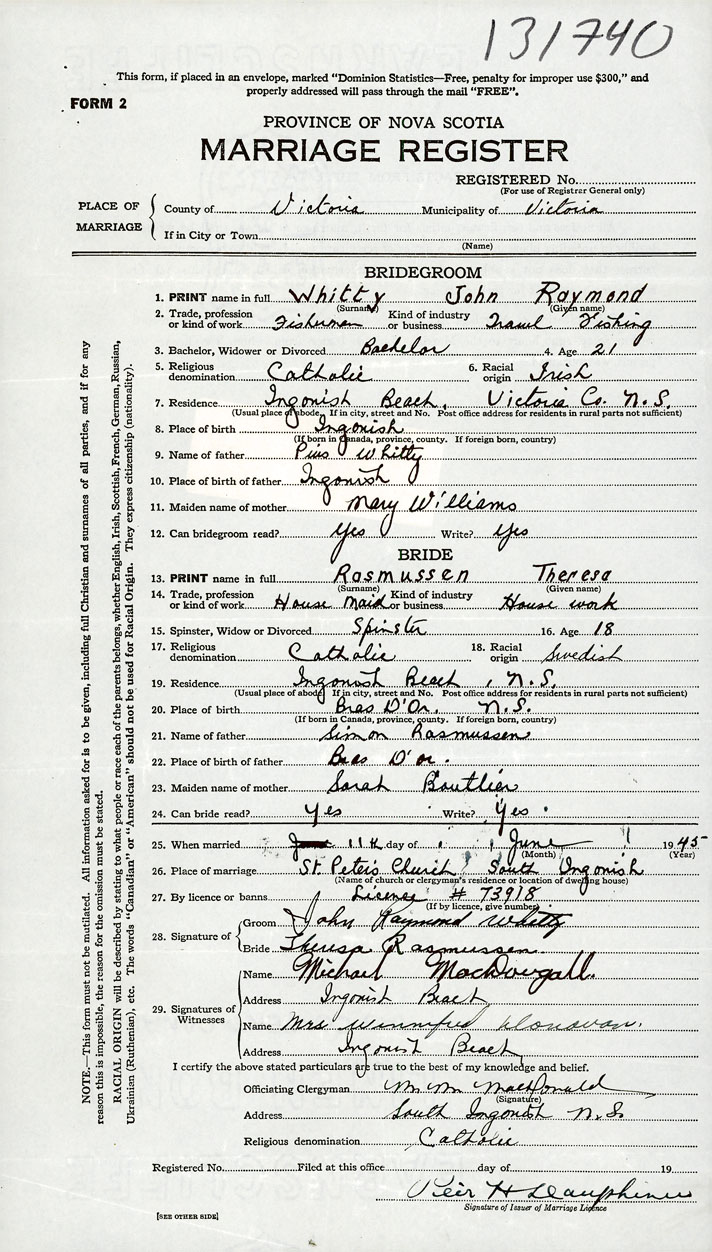 131740
This form, if placed in an envelope, marked "Dominion Statistics—Free, penalty for improper use $300," and
properly addressed will pass through the mail "FREE".
FORM 2
PROVINCE OF NOVA SCOTIA
MARRIAGE REGISTER
REGISTERED No.
(For use of Registrar General only)
PLACE OF MARRIAGE
County of Victoria Municipality of Victoria
If in City or Town
(Name)
BRIDEGROOM
1. PRINT name in full Whitty John Raymond
(Surname) (Given name)
2. Trade, profession or kind of work Fisherman Kind of industry or business Trawl Fishing
3. Bachelor, Widower or Divorced Bachelor 4. Age 21
5. Religious denomination Catholic 6. Racial origin Irish
7. Residence Ingonish Beach, Victoria Co. N.S.
(Usual place of abode. If in city, street and No. Post office address for residents in rural parts not sufficient)
8. Place of birth Ingonish
(If born in Canada, province, county. If foreign born, country)
9. Name of father Pius Whitty
10. Place of birth of father Ingonish
11. Maiden name of mother Mary Williams
12. Can bridegroom read? Yes Write? Yes
BRIDE
13. PRINT name in full Rasmussen Theresa
(Surname) (Given name)
14. Trade, profession or kind of work House Maid Kind of industry or business House work
15. Spinster, Widow or Divorced Spinster 16. Age 18
17. Religious denomination Catholic 18. Racial origin Swedish
19. Residence Ingonish Beach, N.S.
(Usual place of abode. If in city, street and No. Post office address for residents in rural parts not sufficient)
20. Place of birth Bras D'Or. N.S.
(If born in Canada, province, county. If foreign born, country)
21. Name of father Simon Rasmussen
22. Place of birth of father Bras D'or.
23. Maiden name of mother Sarah Boutlier
24. Can bride read? Yes Write? Yes
25. When married 11th day of June 1945
(Month) (Year)
26. Place of marriage St. Peter's Church South Ingonish
(Name of church or clergyman's residence or location of dwelling house)
27. By licence or banns License # 73918
(If by licence, give number)
28. Signature of
Groom John Raymond Whitty
Bride Theresa Rasmussen
29. Signatures of Witnesses
Name Michael MacDougall.
Address Ingonish Beach
Name Mrs Winnifred Donovan.
Address Ingonish Beach
I certify the above stated particulars are true to the best of my knowledge and belief.
Officiating Clergyman MacDonald
(Signature)
Address South Ingonish N.S.
Religious denomination Catholic
Registered No. Filed at this office day of 19
H Dauphinee
Signature of Issuer of Marriage Licence
[SEE OTHER SIDE]
NOTE.—This form must not be mutilated. All information asked for is to be given, including full Christian and surnames of all parties, and if for any
reason this is impossible, the reason for the omission must be stated.
RACIAL ORIGIN will be described by stating to what people or race each of the parents belongs, whether English, Irish, Scottish, French, German, Russian,
Ukrainian (Ruthenian), etc. The words "Canadian" or "American" should not be used for Racial Origin. They express citizenship (nationality).